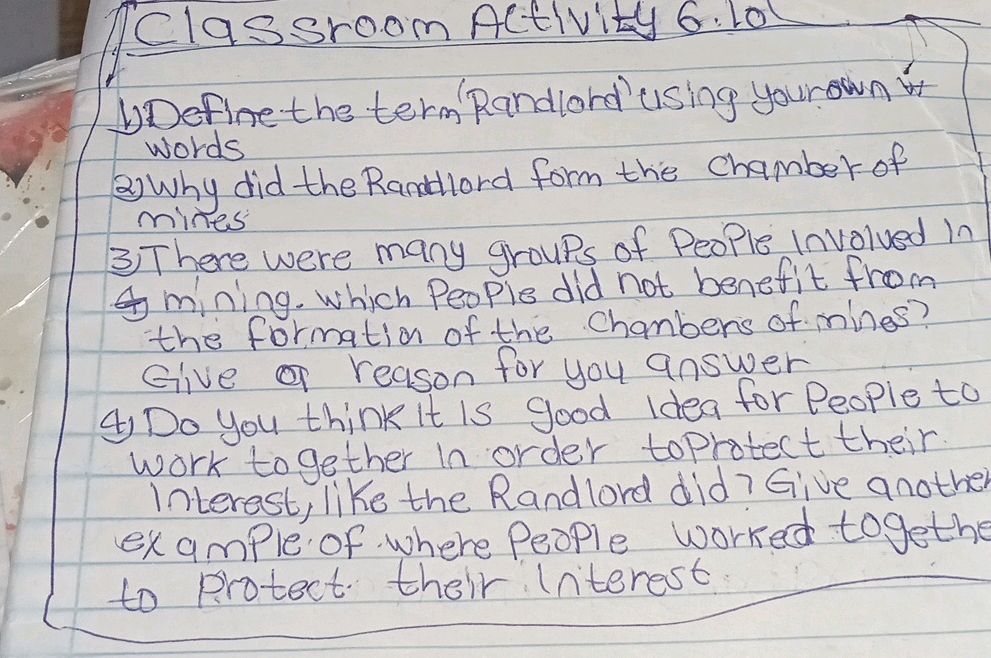 Classroom Activity 6.10
1) Define the term 'Randlord' using your own
words
2) Why did the Randlord form the Chamber of
mines
3) There were many groups of People involved in
mining. which People did not benefit from
the formation of the Chambers of mines?
Give a reason for you answer
4) Do you think it is good idea for People to
work together in order to protect their
Interest, like the Randlord did? Give another
example of where People worked togethe
to Protect their interest